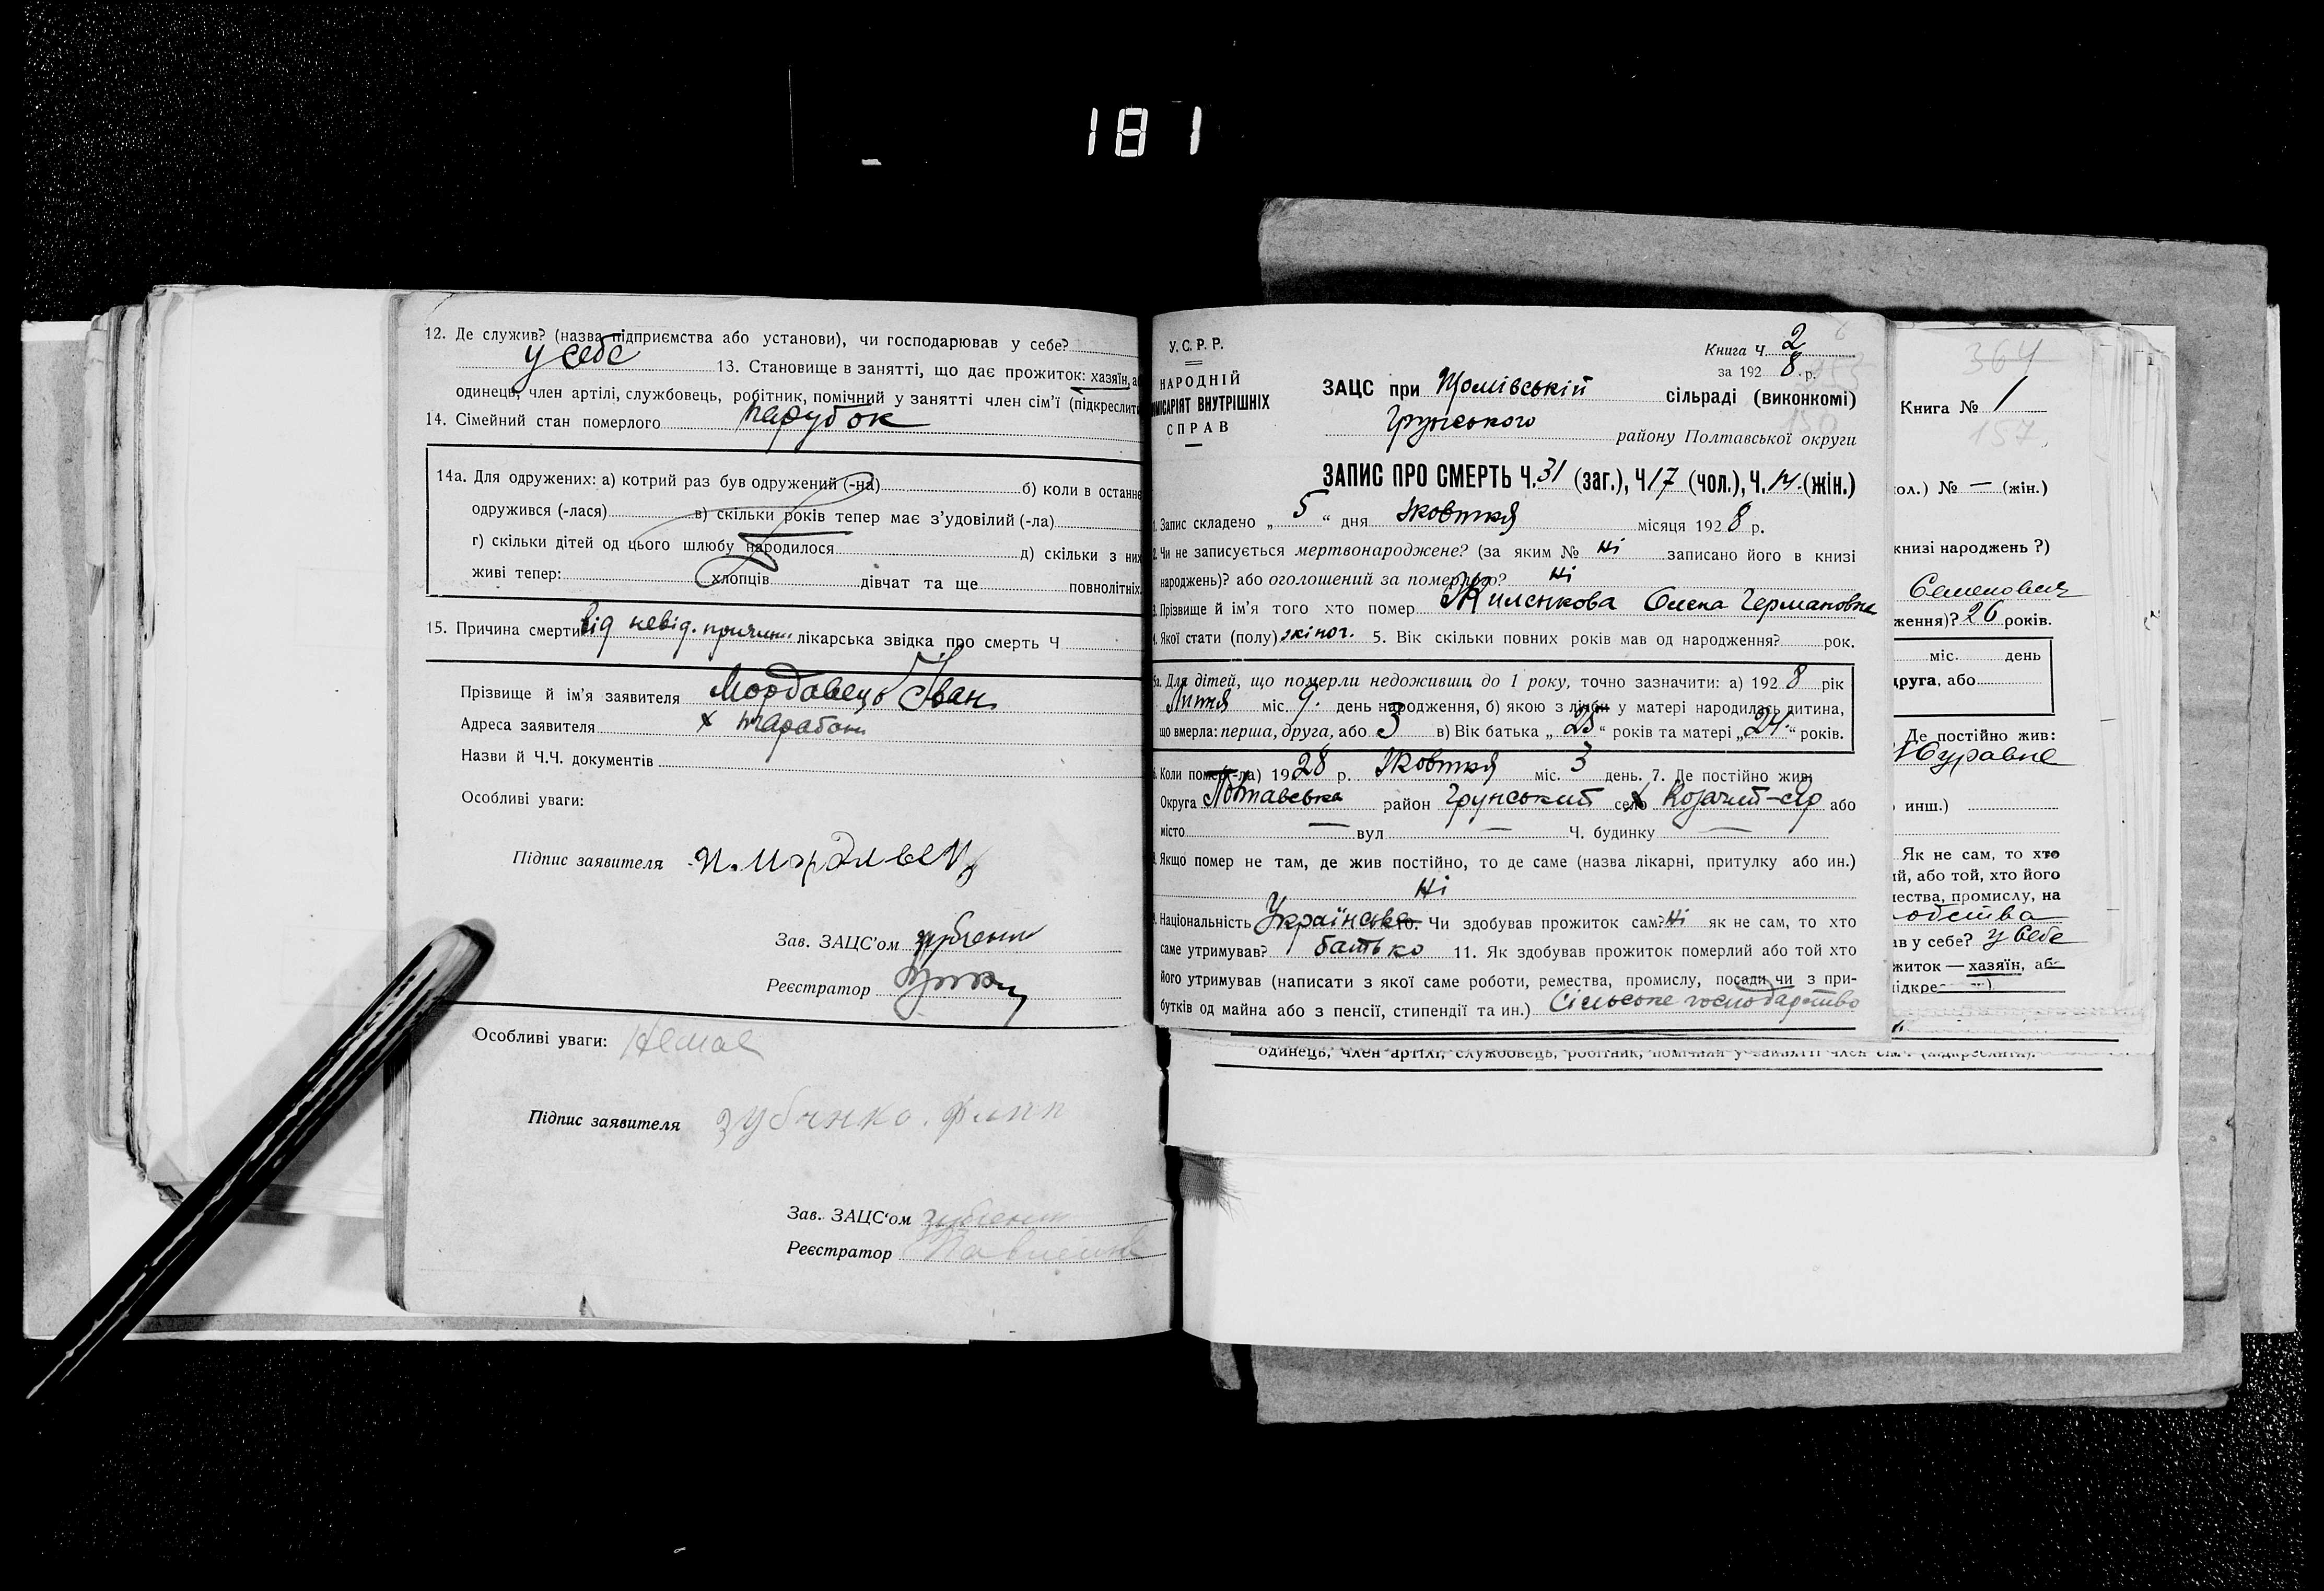 181
12. Де служив? (назва підприємства або установи), чи господарював у себе?
у себе 13. Становище в занятті, що дає прожиток: хазяїн, а
одинець, член артілі, службовець, робітник, помічний у занятті член сім'ї (підкреслити
14. Сімейний стан померлого парубок
14а. Для одружених: а) котрий раз був одружений (-на) б) коли в останнє
одружився (-лася) в) скільки років тепер має з'удовілий (-ла)
г) скільки дітей од цього шлюбу народилося д) скільки з них
живі тепер: хлопців дівчат та ще повнолітніх
15. Причина смерти від невід. причини лікарська звідка про смерть Ч
Прізвище й ім'я заявителя Мордовець Іван
Адреса заявителя х
Назви й Ч.Ч. документів
Особливі уваги:
Підпис заявителя
Зав. ЗАЦС'ом
Реєстратор
Особливі уваги: Немає
Підпис заявителя
Зав. ЗАЦС'ом
Реєстратор
У.С.Р.Р.
НАРОДНІЙ
МІСАРІЯТ ВНУТРІШНІХ
СПРАВ
Книга Ч. 2
за 1928 р.
ЗАЦС при сільраді (виконкомі)
Грунського району Полтавської округи
ЗАПИС ПРО СМЕРТЬ Ч. 31 (заг.), Ч 17 (чол.), Ч. 14 (жін.)
1. Запис складено „ 5 “ дня Жовтня місяця 1928 р.
2. Чи не записується мертвонароджене? (за яким № ні записано його в книзі
народжень)? або оголошений за померлого? ні
3. Прізвище й ім'я того хто помер Жиленкова Олена Германовна
4. Якої стати (полу) жіноч. 5. Вік скільки повних років мав од народження? рок.
5а. Для дітей, що померли недоживши до 1 року, точно зазначити: а) 1928 рік
Липня міс. 9. день народження, б) якою з ліку у матері народилась дитина,
що вмерла: перша, друга, або 3 в) Вік батька „ 25 “ років та матері „ 24 “ років.
6. Коли помер (-ла) 1928 р. Жовтня міс. 3 день. 7. Де постійно жив:
Округа Полтавська район Грунський село х або
місто — вул — Ч. будинку —
8. Якщо помер не там, де жив постійно, то де саме (назва лікарні, притулку або ин.)
Ні
9. Національність Українська 10. Чи здобував прожиток сам? Ні як не сам, то хто
саме утримував? батько 11. Як здобував прожиток померлий або той хто
його утримував (написати з якої саме роботи, ремества, промислу, посади чи з при-
бутків од майна або з пенсії, стипендії та ин.) Сільське господарство
одинець, член артілі, службовець, робітник, помічний у занятті член сім'ї (підкреслити).
364
Книга № 1
157
ол.) № — (жін.)
книзі народжень ?)
Семенович
ження)? 26 років.
міс. день
друга, або
Де постійно жив:
инш.)
Як не сам, то хто
ий, або той, хто його
мества, промислу, на
ав у себе? у себе
житок — хазяїн, або